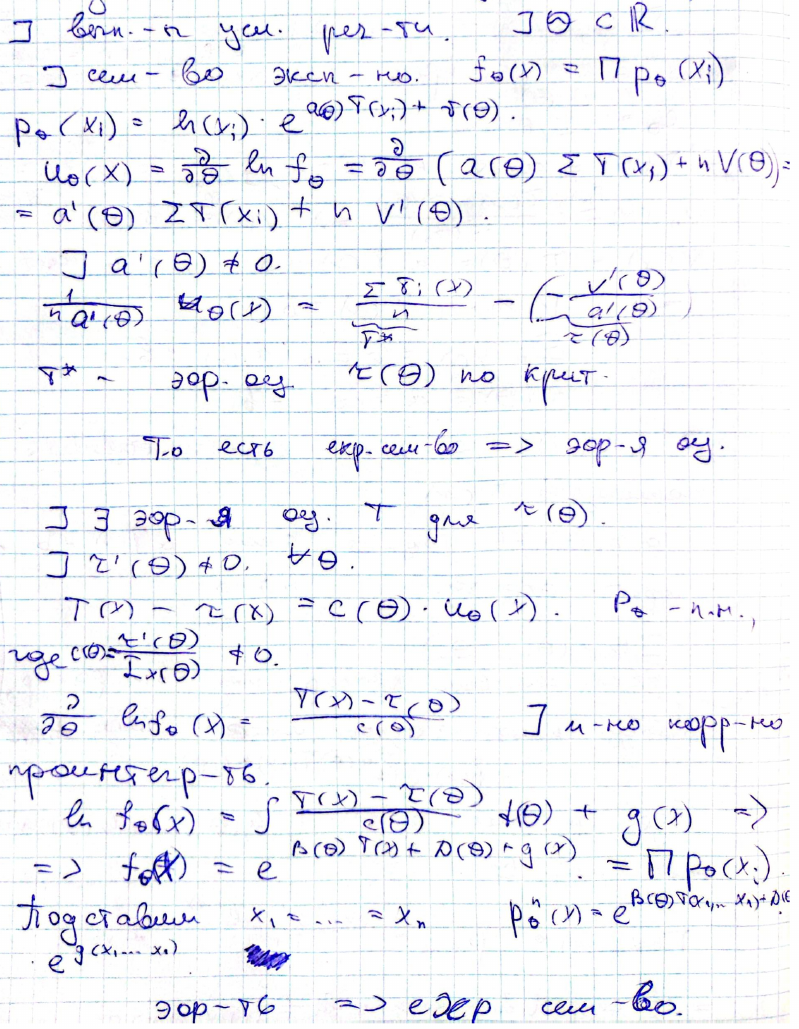 ∃ вып.-н усл. рег-ти. ∃ Θ ⊂ ℝ.
∃ сем-во эксп-но. f_θ(x) = Π p_θ(x_i)
p_θ(x_i) = h(x_i) · e^{a(θ) T(x_i) + V(θ)}.
u_θ(x) = ∂/∂θ ln f_θ = ∂/∂θ (a(θ) Σ T(x_i) + n V(θ)) =
= a'(θ) Σ T(x_i) + n V'(θ).
∃ a'(θ) ≠ 0.
1/(n a'(θ)) u_θ(x) = Σ T_i(x)/n − (− V'(θ)/a'(θ))
T* τ(θ)
T* – эфф. оц. τ(θ) по крит.
То есть екр. сем-во => эфф-я оц.
∃ ∃ эфф-я оц. T для τ(θ).
∃ τ'(θ) ≠ 0. ∀ θ.
T(x) − τ(x) = c(θ) · u_θ(x). P_θ – п.н.,
где c(θ) = τ'(θ)/I_x(θ) ≠ 0.
∂/∂θ ln f_θ(x) = (T(x) − τ(θ))/c(θ) ∃ м-но корр-но
проинтегр-ть.
ln f_θ(x) = ∫ (T(x) − τ(θ))/c(θ) d(θ) + g(x) =>
=> f_θ(x) = e^{B(θ) T(x) + D(θ) + g(x)} = Π p_θ(x_i).
Подставим x_1 = ... = x_n p_θ^n(x) = e^{B(θ) T(x_1, ... x_1) + D(θ
e^{g(x_1 ... x_1)}
эфф-ть => екр сем-во.